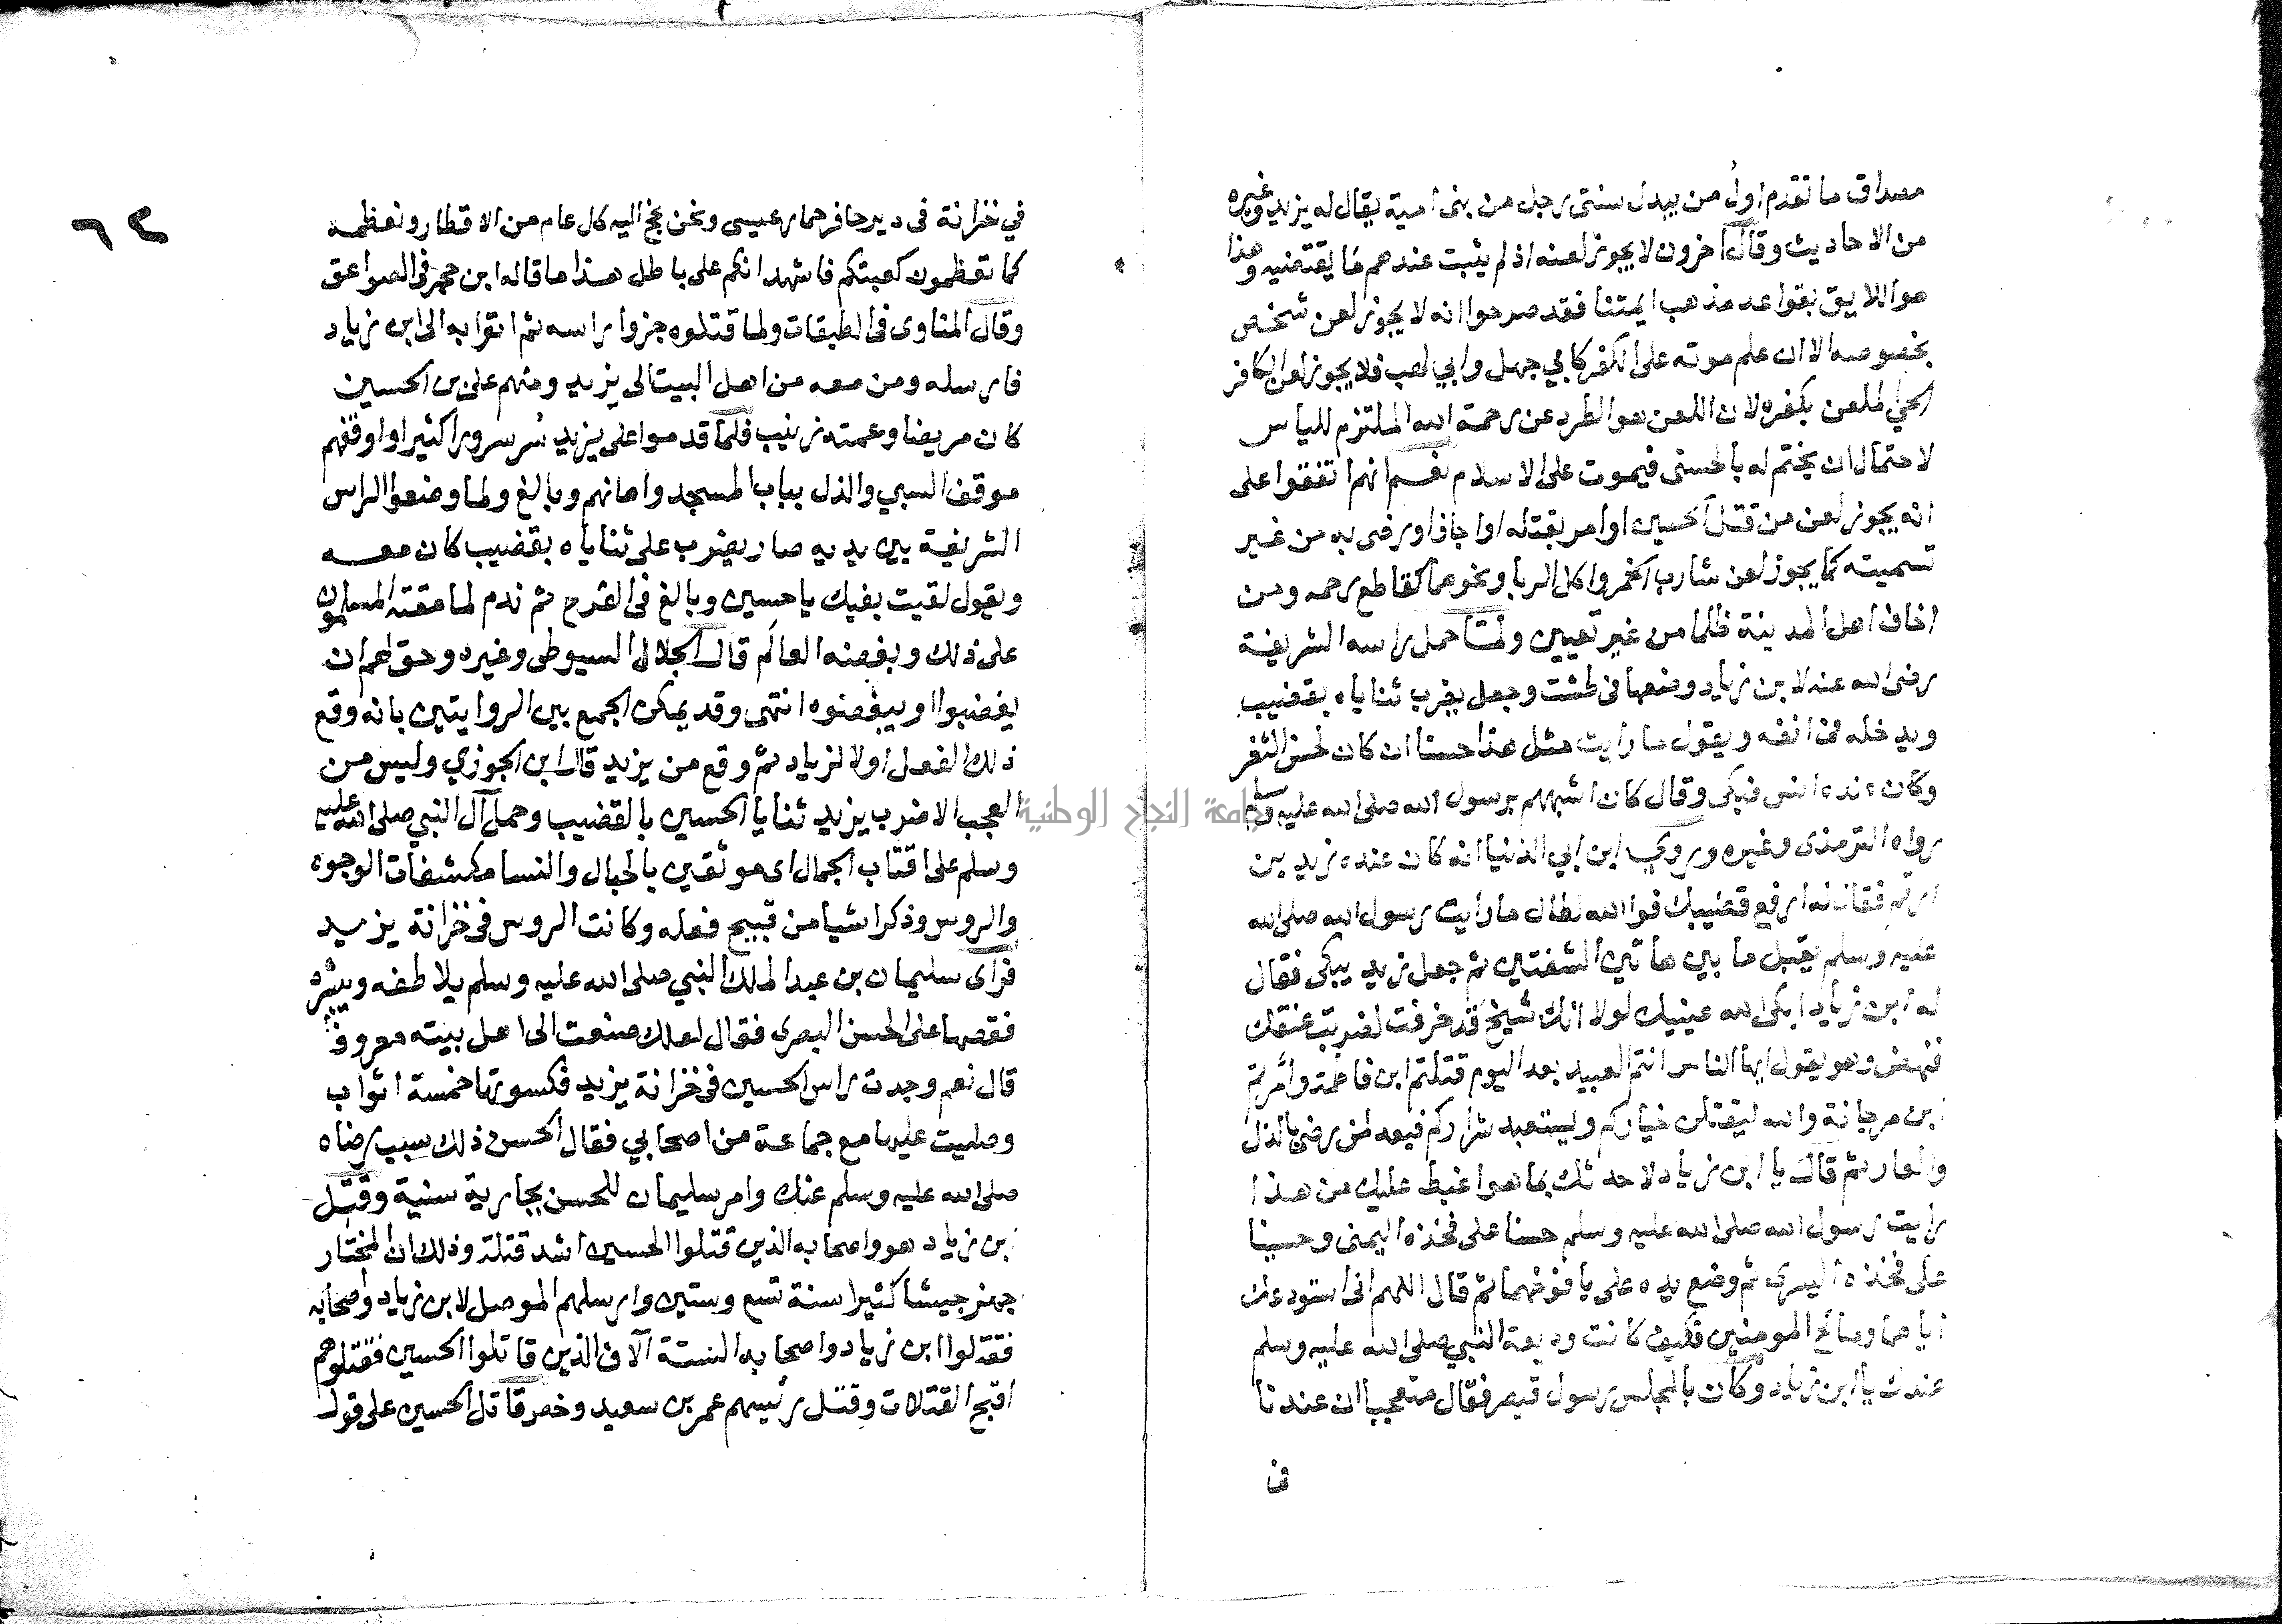 مصداق ما تقدم اول من يبدل سنتي رجل من بنى امية يقال له يزيد وغيره
من الاحاديث وقال اخرون لا يجوز لعنه اذ لم يثبت عندهم ما يقتضيه وهذا
هو اللايق بقواعد مذهب ايمتنا فقد صرحوا انه لا يجوز لعن شخص
بخصوصه الا ان علم موته على الكفر كابي جهل وابي لهب فلا يجوز لعن الكافر
الحي المعلن بكفره لان اللعن هو الطرد عن رحمة الله الملتزم للياس
لاحتمال ان يختم له بالحسنى فيموت على الاسلام نعم انهم اتفقوا على
انه يجوز لعن من قتل الحسين او امر بقتله او اجازا ورضى به من غير
تسميته كما يجوز لعن شارب الخمر واكل الربا ونحوهما كقاطع رحمه ومن
اخاف اهل المدينة ظلما من غير تعيين ولما حمل راسه الشريفة
رضى الله عنه لابن زياد وضعها فى طشت وجعل يضرب ثناياه بقضيب
ويدخله فى انفه ويقول ما رايت مثل هذا حسنا ان كان لحسن الثغر
وكان عنده انس فبكى وقال كان اشبههم برسول الله صلى الله عليه وسلم
رواه الترمذى وغيره وروى ابن ابي الدنيا انه كان عنده زيد بن
ارقم فقال له ارفع قضيبك فوالله لطال ما رأيت رسول الله صلى الله
عليه وسلم يقبل ما بين هاتين الشفتين ثم جعل زيد يبكى فقال
له ابن زياد ابكى الله عينيك لولا انك شيخ قد خرفت لضربت عنقك
فنهض وهو يقول ايها الناس انتم العبيد بعد اليوم قتلتم ابن فاطمة وأمرتم
ابن مرجانة والله ليقتلن خياركم وليستعبد شراركم فبعد لمن رضى بالذل
والعار ثم قال يا ابن زياد لاحدثك بما هو اغيظ عليك من هذا
رايت رسول الله صلى الله عليه وسلم حسنا على فخذه اليمنى وحسينا
على فخذه اليسرى ثم وضع يده على يافوخهما ثم قال اللهم انى استودعك
اياهما وصالح المومنين فكيف كانت وديعة النبي صلى الله عليه وسلم
عندك يا ابن زياد وكان بالمجلس رسول قيصر فقال متعجبا ان عندنا
فى
٦٣
في خزانة فى دير حافر حمار عيسى ونحن نحج اليه كل عام من الاقطار ونعظمه
كما تعظمون كعبتكم فاشهد انكم على باطل هذا ما قاله ابن حجر فى الصواعق
وقال المناوى فى الطبقات ولما قتلوه جزوا راسه ثم اتوا به الى ابن زياد
فارسله ومن معه من اهل البيت الى يزيد ومنهم على بن الحسين
كان مريضا وعمته زينب فلما قدموا على يزيد سُر سرورا كثيرا واوقفهم
موقف السبي والذل بباب المسجد واهانهم وبالغ ولما وضعوا الراس
الشريفة بين يديه صار يضرب على ثناياه بقضيب كان معه
ويقول لقيت بغيك يا حسين وبالغ فى الفرح ثم ندم لما مقته المسلمون
على ذلك وبغضه العالم قال الجلال السيوطى وغيره وحق لهم ان
يغضبوا او يبغضوه انتهى وقد يمكن الجمع بين الروايتين بانه وقع
ذلك الفعل اولا لزياد ثم وقع من يزيد قال ابن الجوزي وليس من
العجب الا ضرب يزيد ثنايا الحسين بالقضيب وحمل آل النبي صلى الله عليه
وسلم على اقتاب الجمال اى موثقين بالحبال والنسا مكشفات الوجوه
والروس وذكر اشيا من قبيح فعله وكانت الروس فى خزانة يزيد
فرأى سليمان بن عبد الملك النبي صلى الله عليه وسلم يلاطفه ويبشره
فقصها على الحسن البصرى فقال لعلك صنعت الى اهل بيته معروفا
قال نعم وجدت راس الحسين فى خزانة يزيد فكسوتها خمسة اثواب
وصليت عليها مع جماعة من اصحابي فقال الحسن ذلك سبب رضاه
صلى الله عليه وسلم عنك وامر سليمان للحسن بجارية سنية وقتل
ابن زياد هو واصحابه الذين قتلوا الحسين اشد قتلة وذلك ان المختار
جهز جيشا كثيرا سنة تسع وستين وارسلهم الموصل لابن زياد واصحابه
فقتلوا ابن زياد واصحابه الستة آلاف الذين قاتلوا الحسين فقتلوهم
اقبح القتلات وقتل رئيسهم عمر بن سعيد وخص قاتل الحسين على قول
جامعة النجاح الوطنية